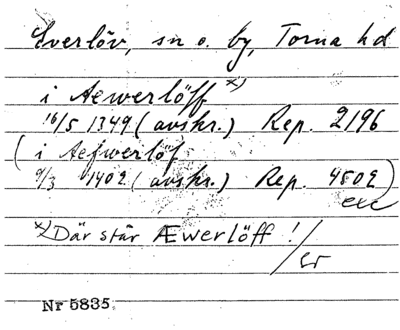 Everlöv, sn o. by, Torna hd
i Aewerlöff x)
16/5 1349 (avskr.) Rep. 2196
(i Aefwerlöf
9/3 1402 (avskr.) Rep. 4502)
exc
x) Där står Æwerlöff!
/er
Nr 5835.